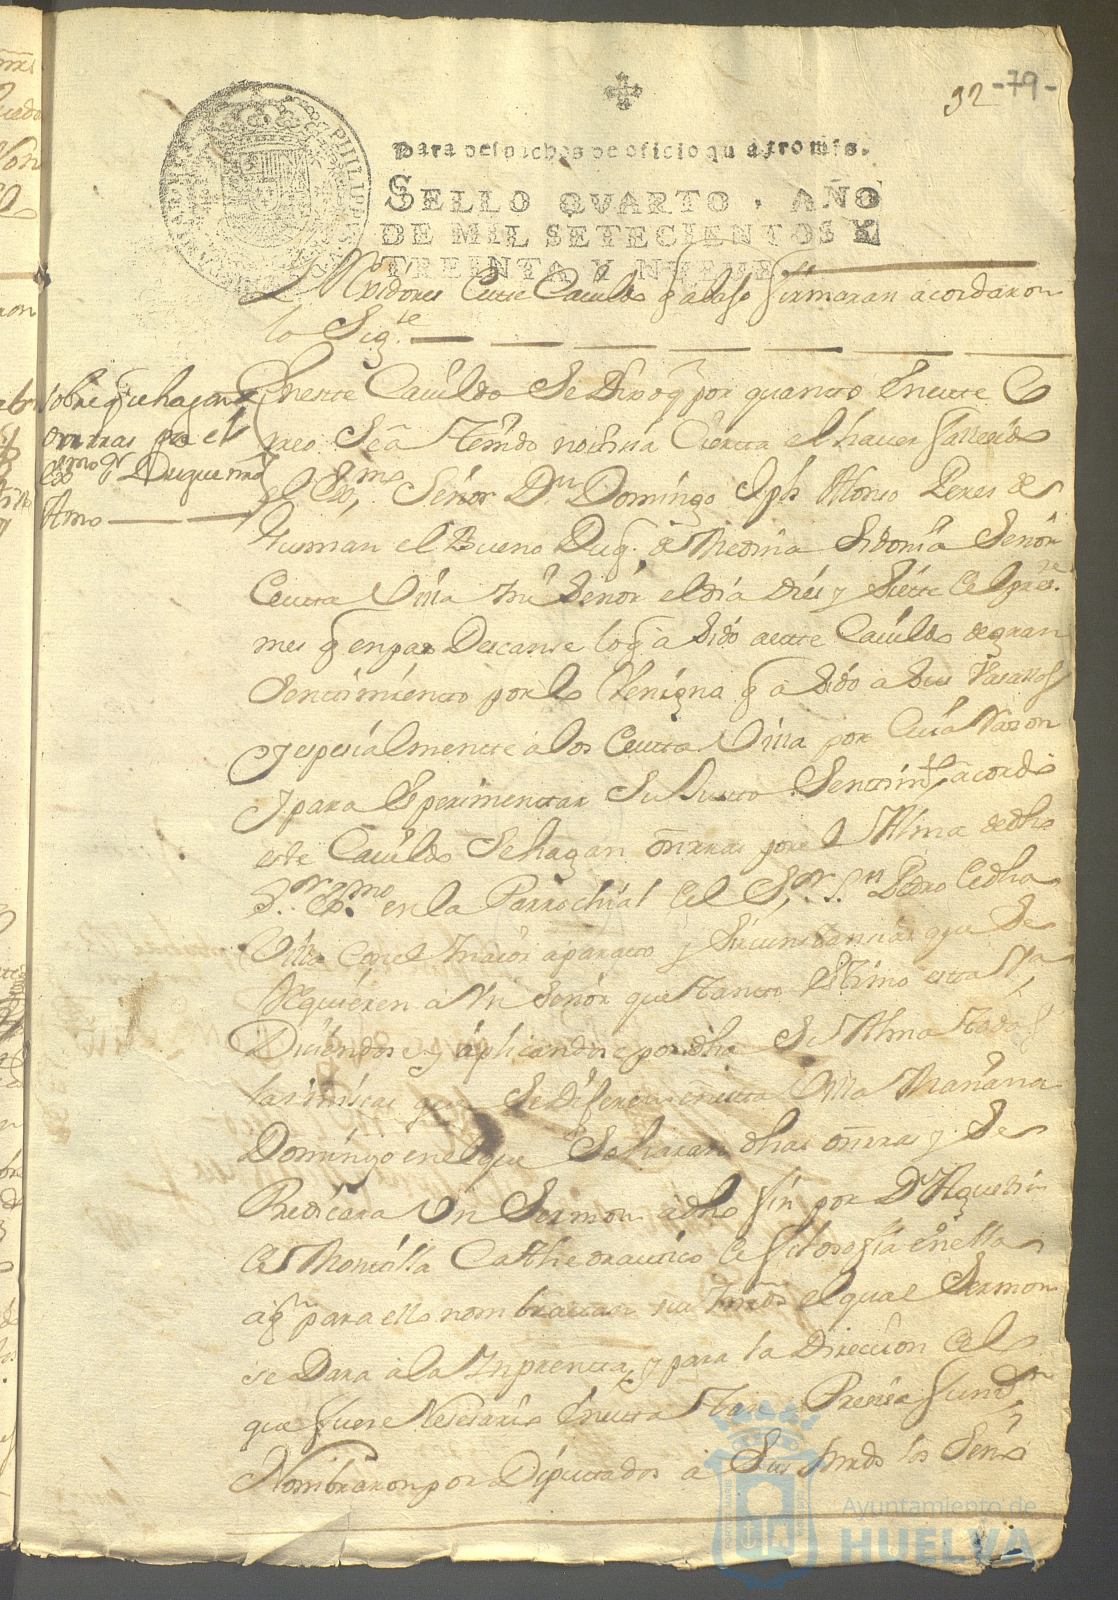 92 -79-
Para despachos de oficio quatro mrs.
SELLO QVARTO, AÑO
DE MIL SETECIENTOS Y
TREINTA Y NUEUE
Rejidores deste Cauildo q abajo firmaran acordaron
lo Sigte
Sobre q se hagan
onrras por el
exmo Sr Duque mi
Amo
En este Cauildo Se Dijo q por quanto en este Co
rreo Sea tenido noticia Cierta el haver fallecido
el Exmo Señor Dn Domingo Alonso Peres de
Guzman el Bueno Duq de Medina Sidonia Señor
desta Villa mi Señor el dia dies y Siete del preste
mes q en paz Descanse lo q a Sido a este Cauildo de gran
Sentimiento por lo q a Sido a Sus Vasallos
y espesialmente a los desta Villa por Cuia Rason
y para Esperimentar Su Justo Sentimto acordo
este Cauildo Se hagan onrras por el Alma de dho
Sr Exmo en la Parrochial del Sor Sn Pedro de dha
Villa con el maior aparato y Sircunstancias que Se
Requieren a Un Señor que tanto Estimo esta Va
Disiendose y aplicandose por dha Su Alma todas
las misas que Se dijeren en esta Villa Mañana
Domingo en el que Se haran dhas onrras y Se
Predicara Un Sermon a dho fin por Dn Agustin
de Montilla Cathedratico de filosofia en ella
a qn para ello nombraron sus mrds el qual Sermon
se Dara a la Inprenta y para la Direccion del
que fuere Nesesario En esta tan Presisa funsn
Nombraron por Diputados a Sus mrds los Sens
Ayuntamiento de
HUELVA